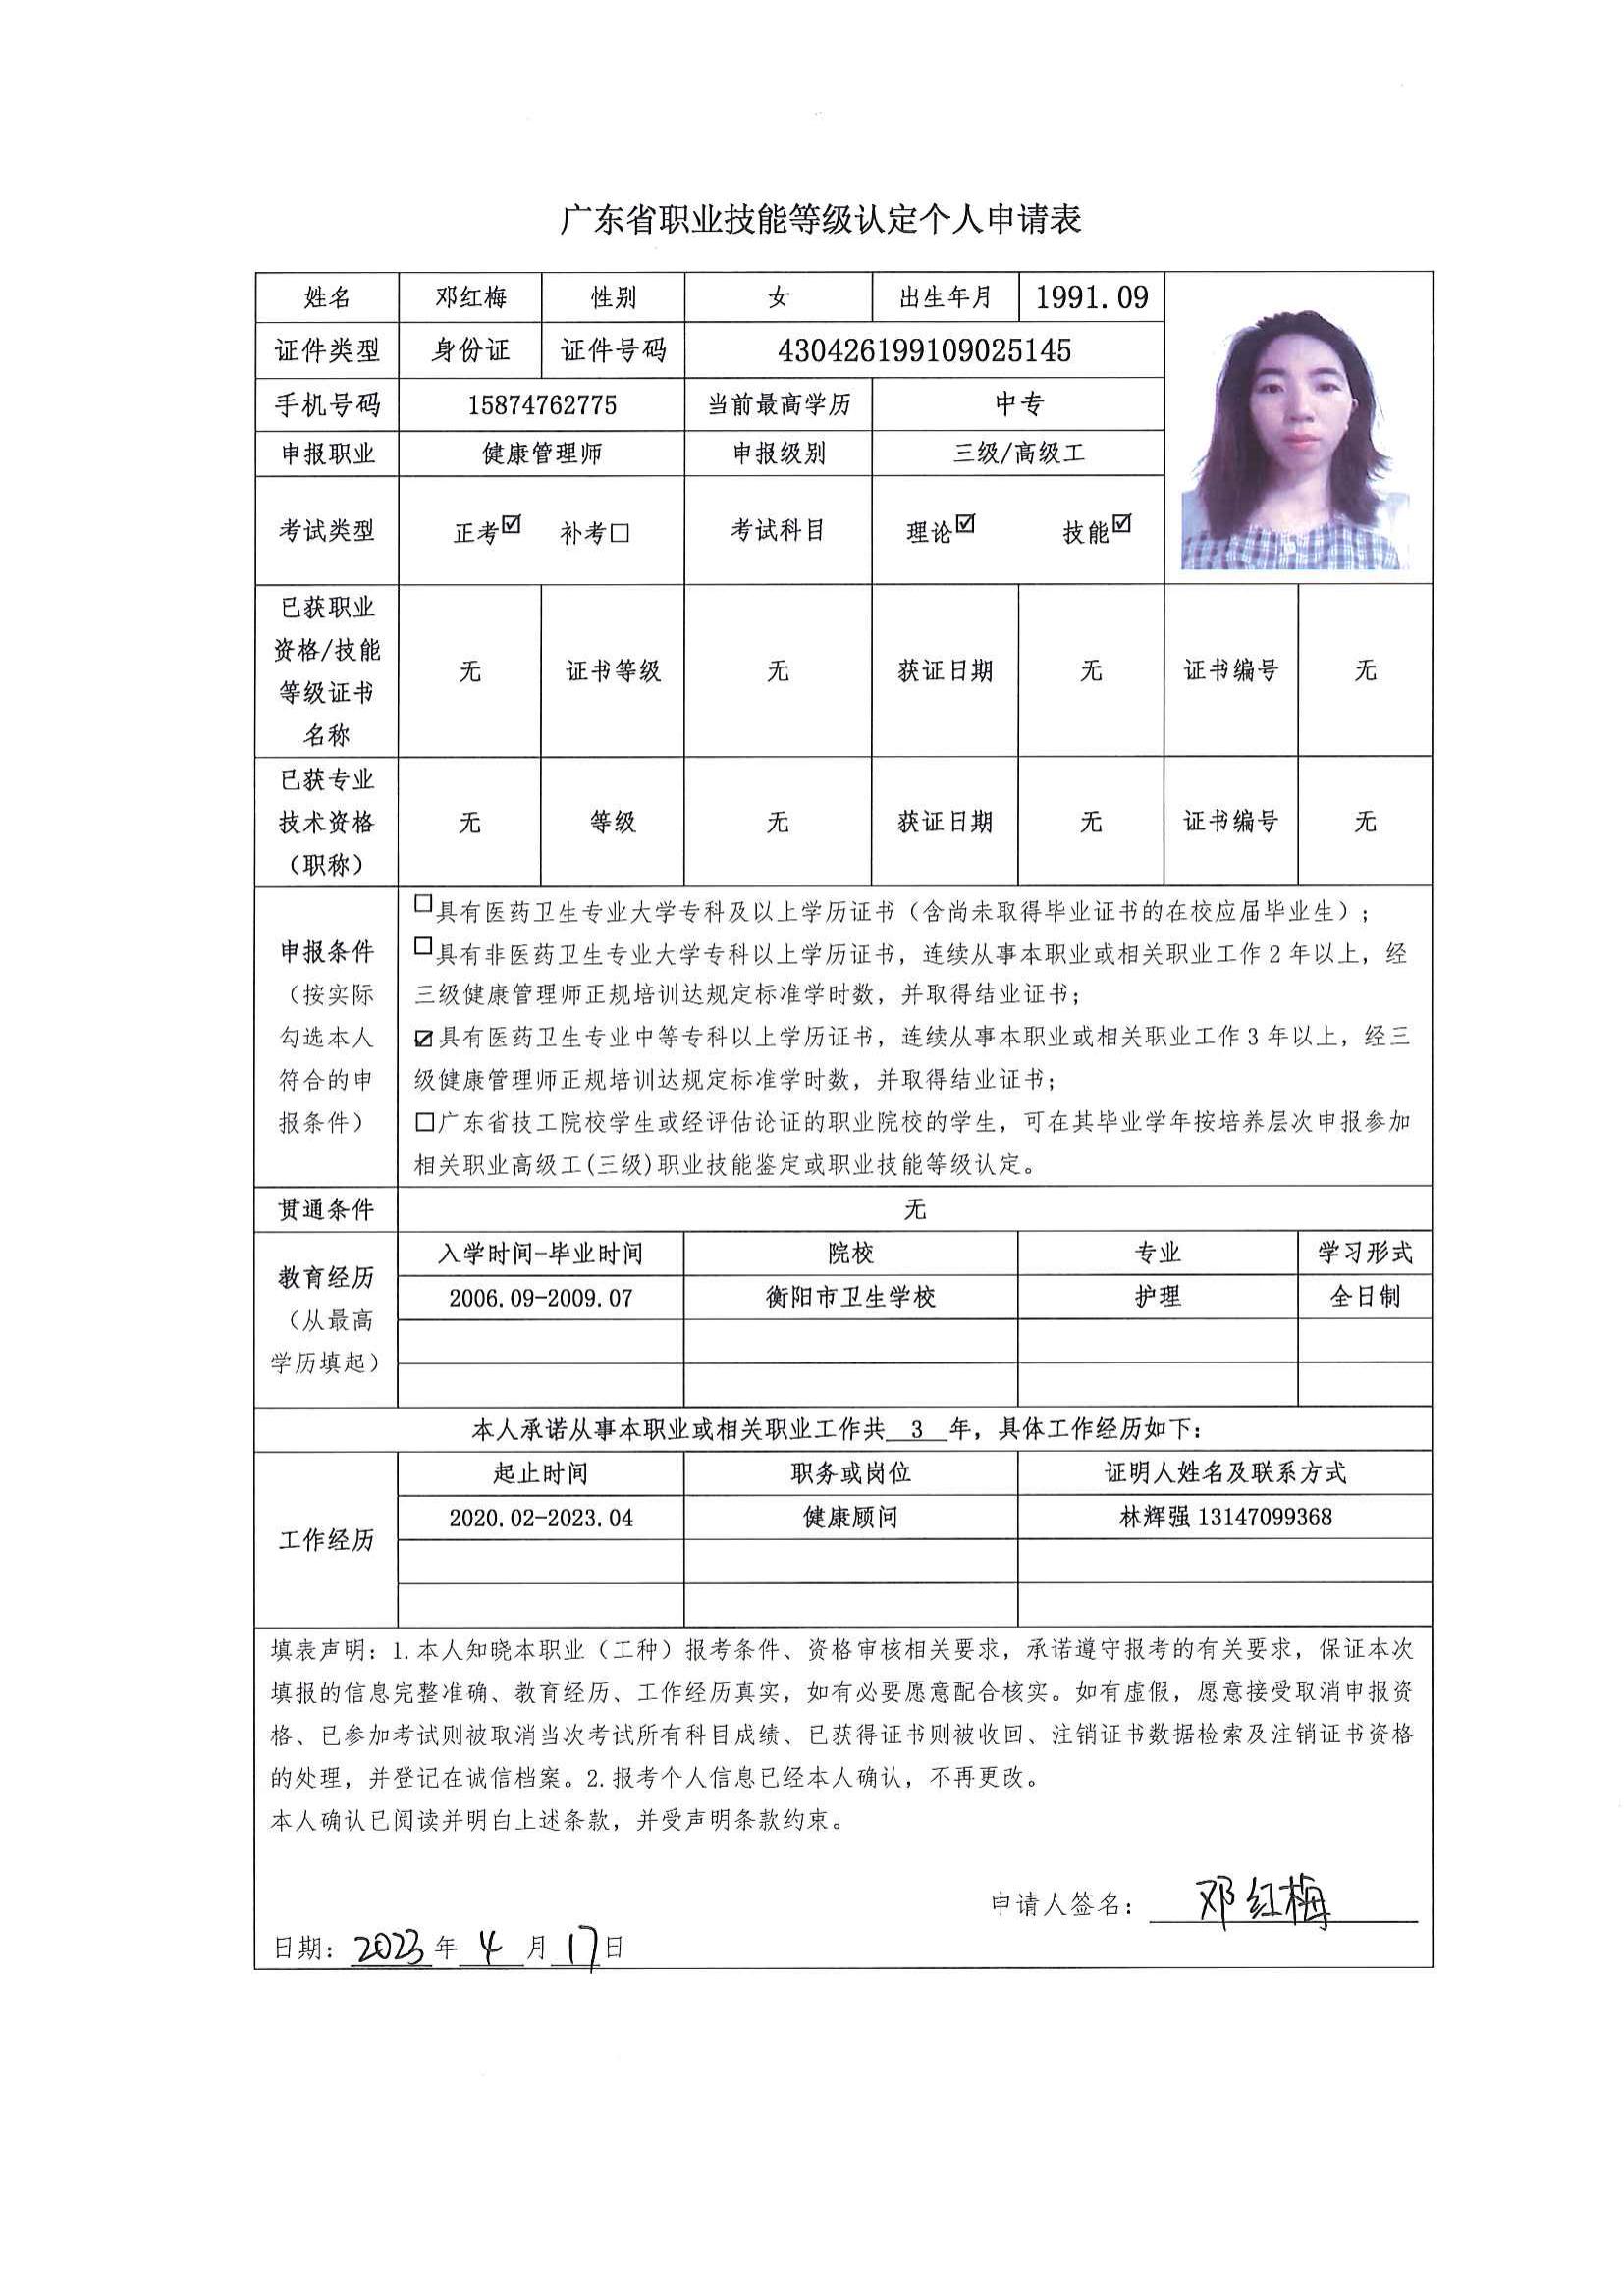 广东省职业技能等级认定个人申请表
姓名 邓红梅 性别 女 出生年月 1991.09
证件类型 身份证 证件号码 430426199109025145
手机号码 15874762775 当前最高学历 中专
申报职业 健康管理师 申报级别 三级/高级工
考试类型 正考☑ 补考☐ 考试科目 理论☑ 技能☑
已获职业
资格/技能
等级证书
名称
无 证书等级 无 获证日期 无 证书编号 无
已获专业
技术资格
（职称）
无 等级 无 获证日期 无 证书编号 无
申报条件
（按实际
勾选本人
符合的申
报条件）
☐具有医药卫生专业大学专科及以上学历证书（含尚未取得毕业证书的在校应届毕业生）；
☐具有非医药卫生专业大学专科以上学历证书，连续从事本职业或相关职业工作2年以上，经
三级健康管理师正规培训达规定标准学时数，并取得结业证书；
☑具有医药卫生专业中等专科以上学历证书，连续从事本职业或相关职业工作3年以上，经三
级健康管理师正规培训达规定标准学时数，并取得结业证书；
☐广东省技工院校学生或经评估论证的职业院校的学生，可在其毕业学年按培养层次申报参加
相关职业高级工(三级)职业技能鉴定或职业技能等级认定。
贯通条件 无
教育经历
（从最高
学历填起）
入学时间-毕业时间 院校 专业 学习形式
2006.09-2009.07 衡阳市卫生学校 护理 全日制
本人承诺从事本职业或相关职业工作共 3 年，具体工作经历如下：
工作经历
起止时间 职务或岗位 证明人姓名及联系方式
2020.02-2023.04 健康顾问 林辉强13147099368
填表声明：1.本人知晓本职业（工种）报考条件、资格审核相关要求，承诺遵守报考的有关要求，保证本次
填报的信息完整准确、教育经历、工作经历真实，如有必要愿意配合核实。如有虚假，愿意接受取消申报资
格、已参加考试则被取消当次考试所有科目成绩、已获得证书则被收回、注销证书数据检索及注销证书资格
的处理，并登记在诚信档案。2.报考个人信息已经本人确认，不再更改。
本人确认已阅读并明白上述条款，并受声明条款约束。
申请人签名：邓红梅
日期：2023年4月17日